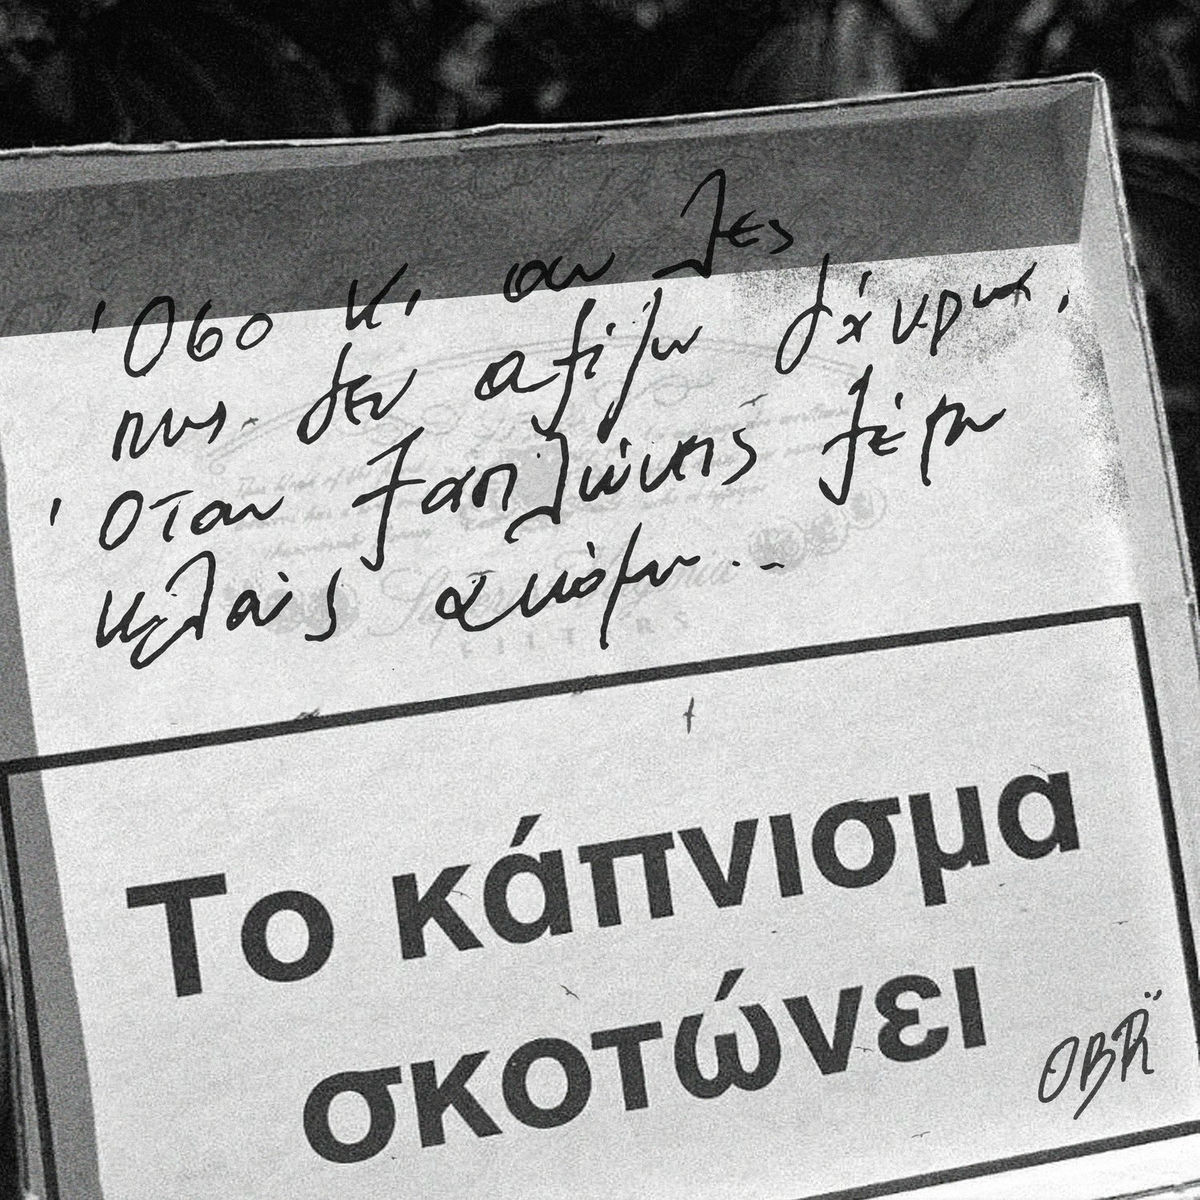 Όσο κι αν λες
πως δεν αξίζω δάκρυα,
Όταν ξαπλώνεις ξέρω
κλαις ακόμα...
Το κάπνισμα
σκοτώνει
OBR